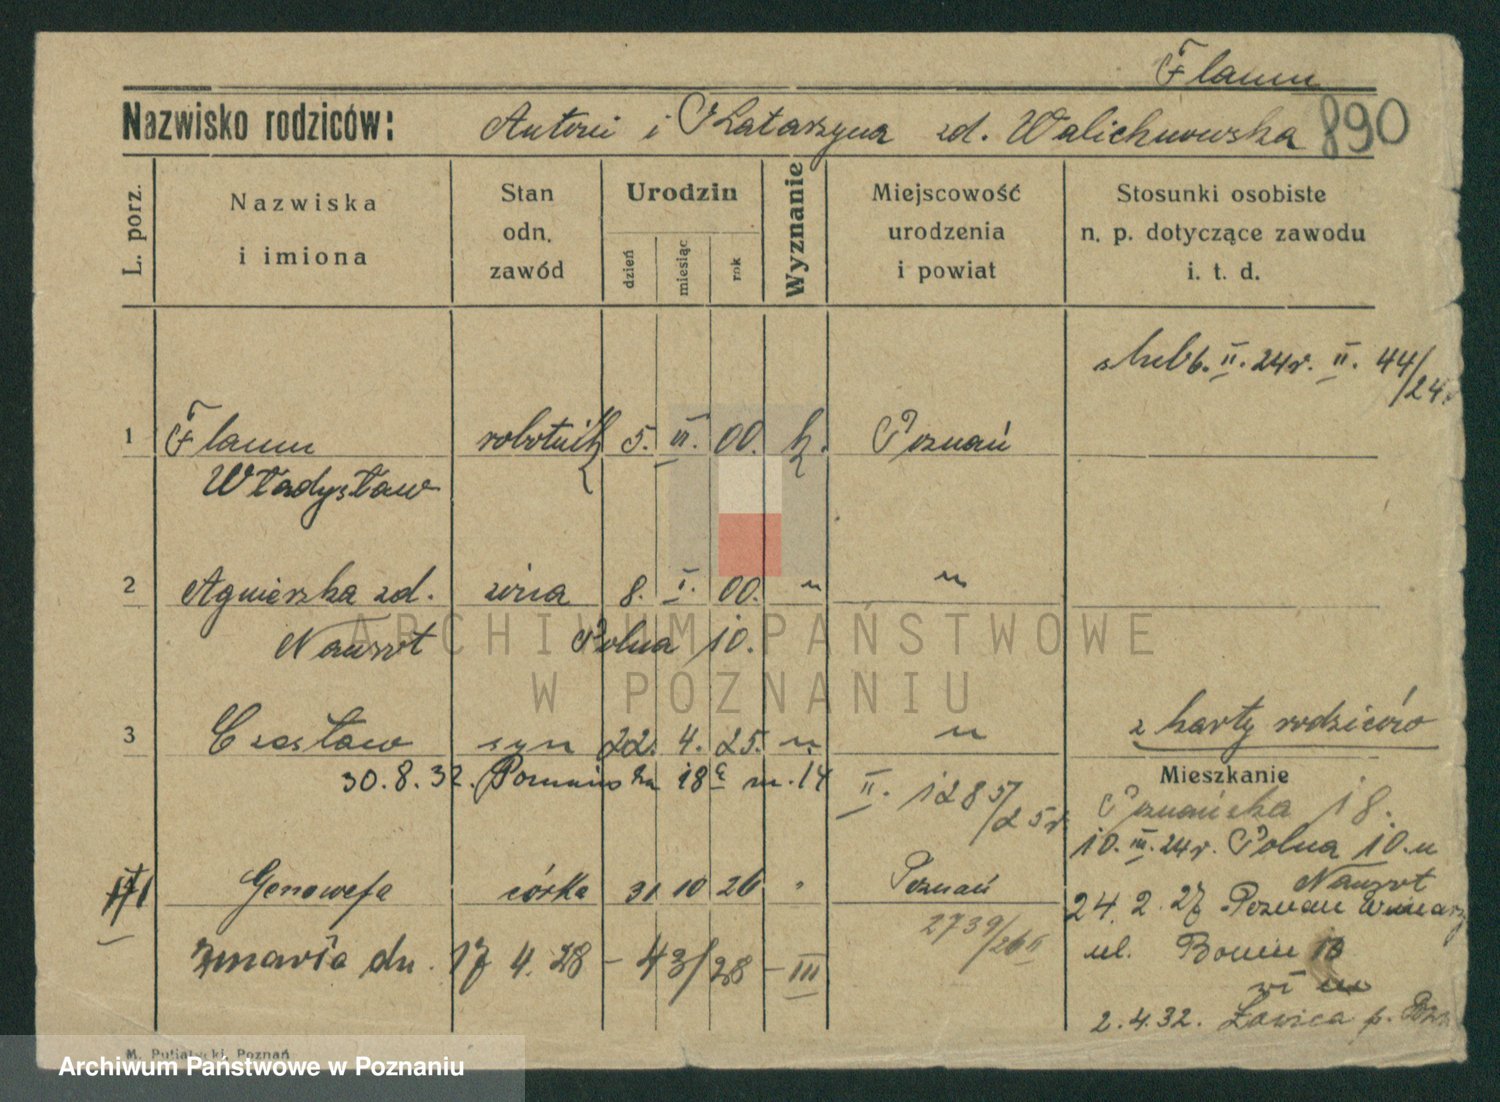 Flaum
Nazwisko rodziców: Antoni i Katarzyna zd. Walichnowska 890
L. porz.
Nazwiska i imiona
Stan odn. zawód
Urodzin
dzień miesiąc rok
Wyznanie
Miejscowość urodzenia i powiat
Stosunki osobiste n. p. dotyczące zawodu i. t. d.
ślub 6. II. 24r. II. 44/24.
1 Flaum robotnik 5. VI. 00. k. Poznań
Władysław
2 Agnieszka zd. żona 8. I. 00. " "
Nawrot Polna 10.
z karty rodziców
3 Czesław syn 22. 4. 25. " "
Mieszkanie
30.8.32. Poznańska 18 m. 14 II. 1285/25r.
Poznańska 18.
10. III. 24r. Polna 10. u
Nawrot
Genowefa córka 31 10 26 " Poznań
24. 2. 27 Poznań
2739/26 II
zmarła dn. 17 4. 28 – 43/28 – III
ul. Bonin 13
2.4.32. Ławica p.
M. Putiatycki, Poznań
ARCHIWUM PAŃSTWOWE
W POZNANIU
Archiwum Państwowe w Poznaniu